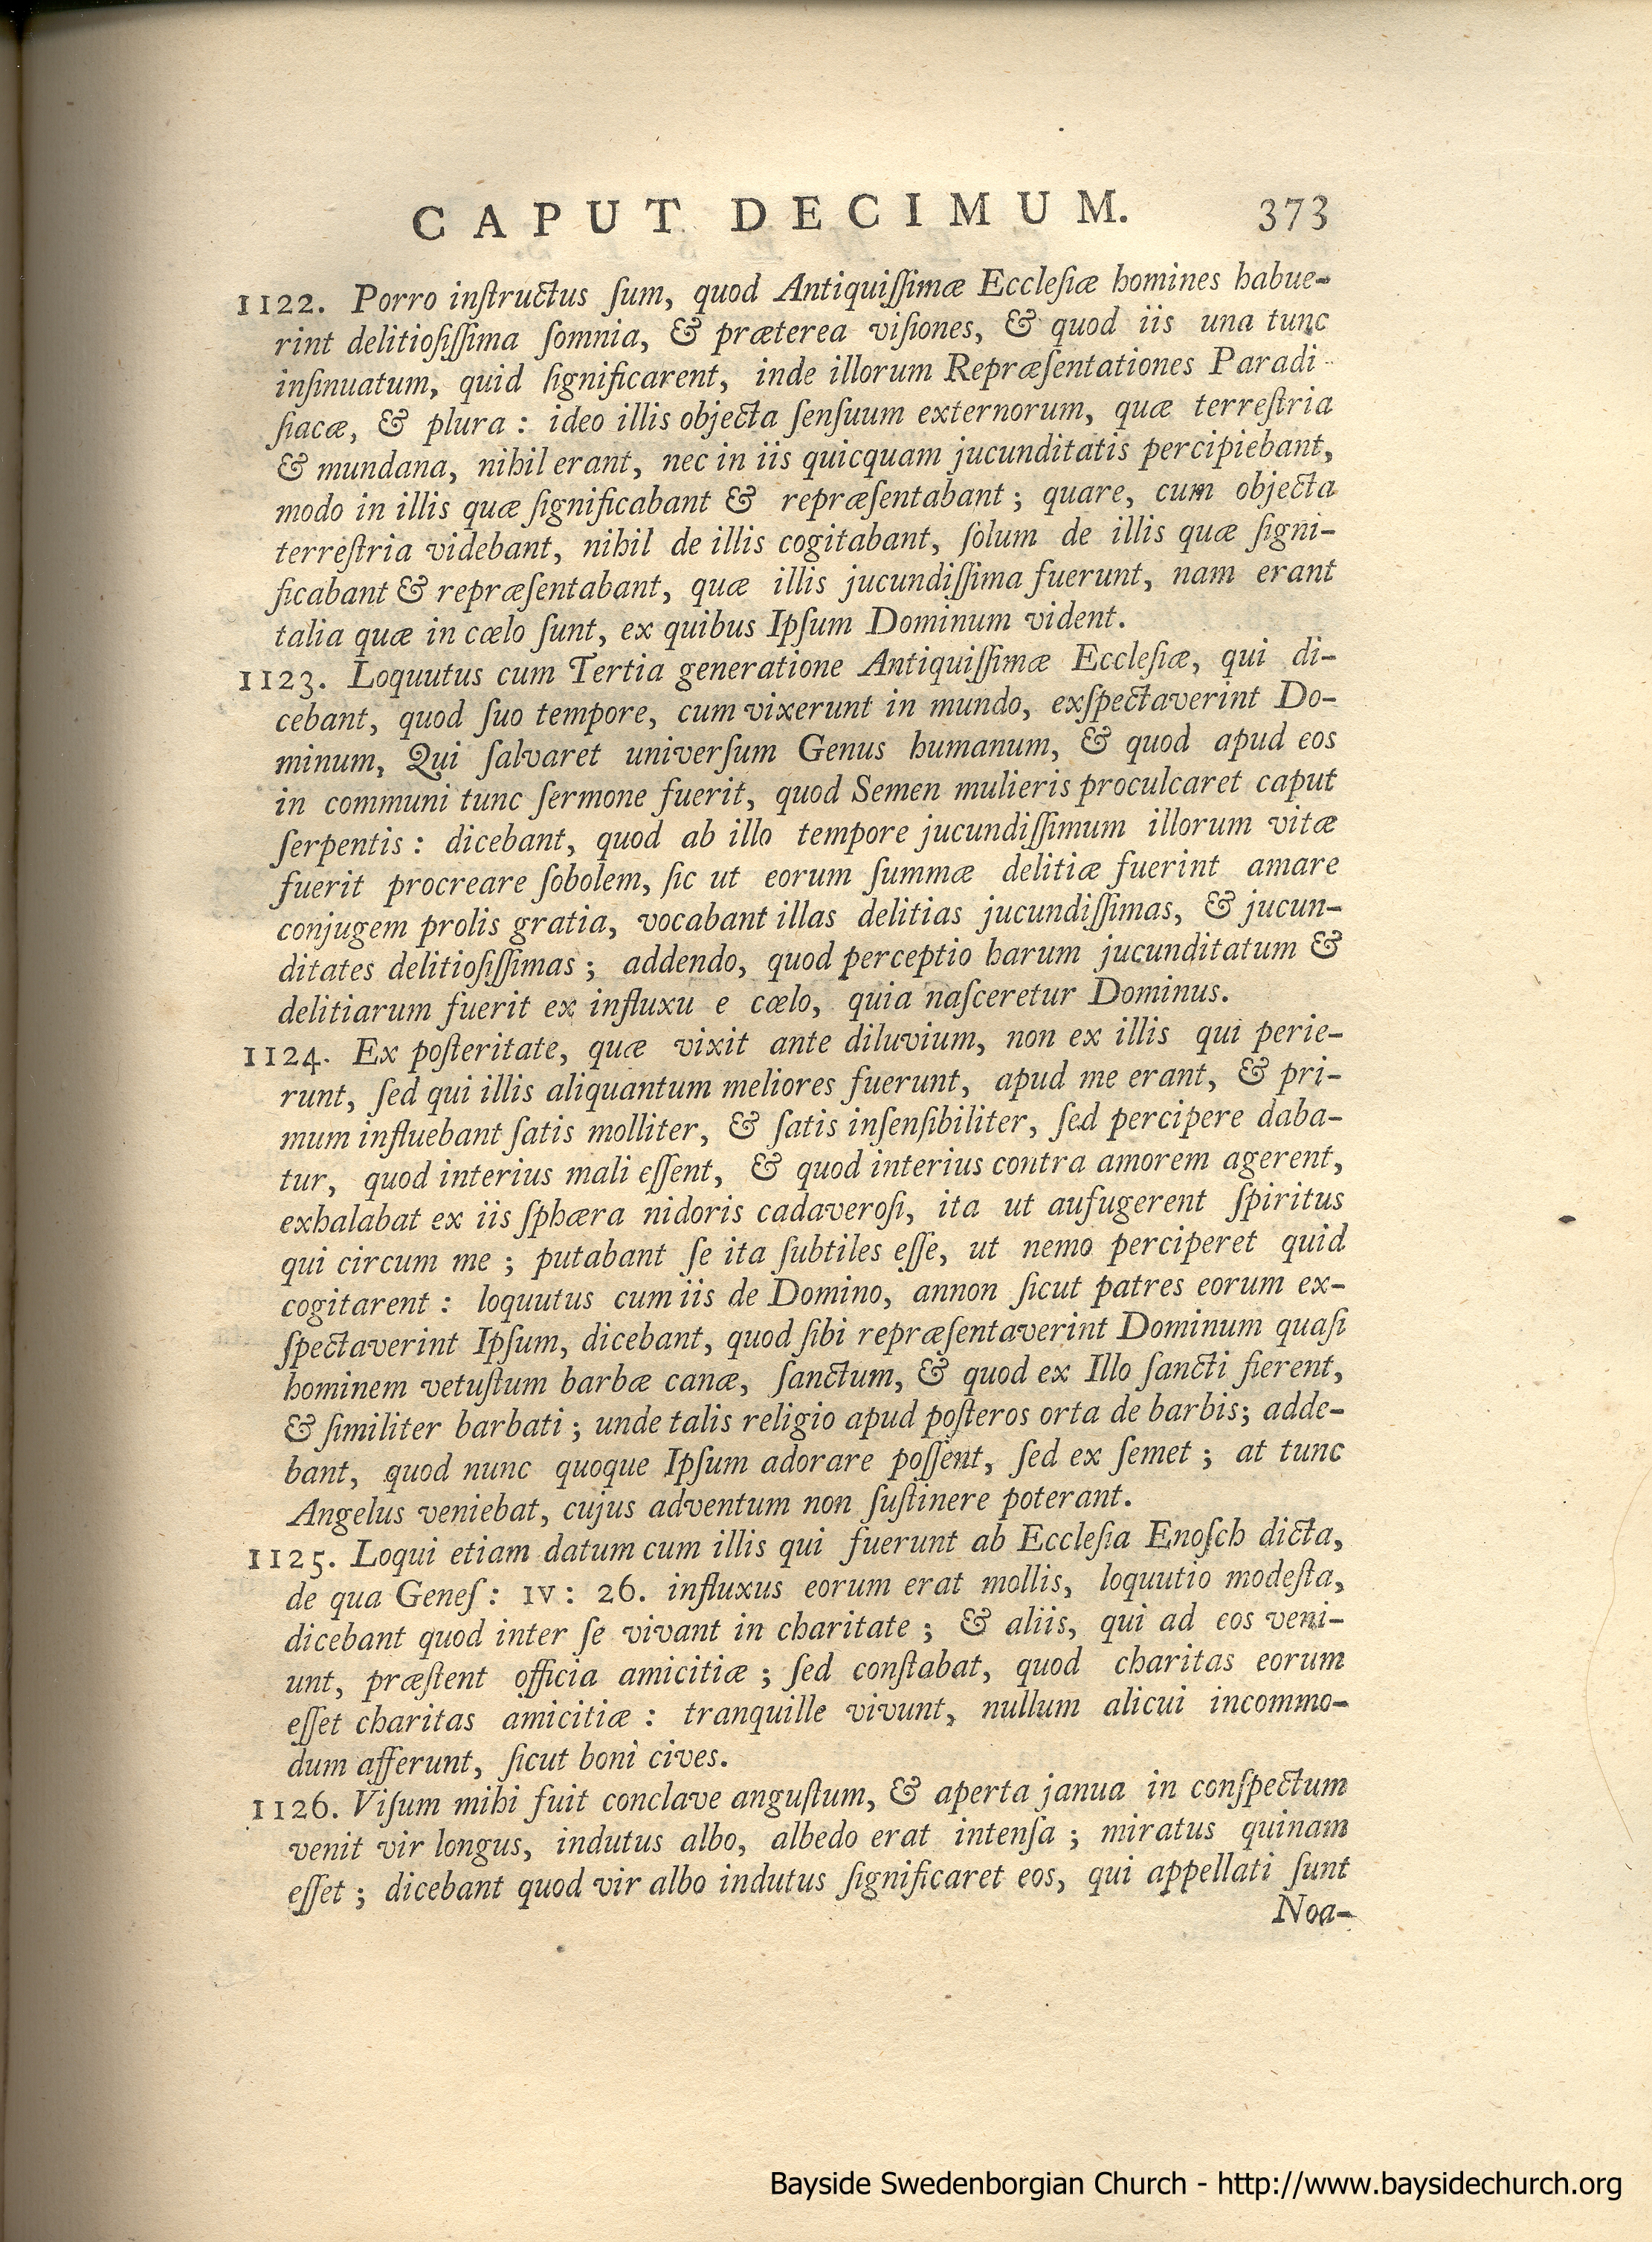 CAPUT DECIMUM. 373
1122. Porro inſtructus ſum, quod Antiquiſſimæ Eccleſiæ homines habue-
rint delitioſiſſima ſomnia, & præterea viſiones, & quod iis una tunc
inſinuatum, quid ſignificarent, inde illorum Repræſentationes Paradi-
ſiacæ, & plura : ideo illis objecta ſenſuum externorum, quæ terreſtria
& mundana, nihil erant, nec in iis quicquam jucunditatis percipiebant,
modo in illis quæ ſignificabant & repræſentabant ; quare, cum objecta
terreſtria videbant, nihil de illis cogitabant, ſolum de illis quæ ſigni-
ficabant & repræſentabant, quæ illis jucundiſſima fuerunt, nam erant
talia quæ in cœlo ſunt, ex quibus Ipſum Dominum vident.
1123. Loquutus cum Tertia generatione Antiquiſſimæ Eccleſiæ, qui di-
cebant, quod ſuo tempore, cum vixerunt in mundo, exſpectaverint Do-
minum, Qui ſalvaret univerſum Genus humanum, & quod apud eos
in communi tunc ſermone fuerit, quod Semen mulieris proculcaret caput
ſerpentis : dicebant, quod ab illo tempore jucundiſſimum illorum vitæ
fuerit procreare ſobolem, ſic ut eorum ſummæ delitiæ fuerint amare
conjugem prolis gratia, vocabant illas delitias jucundiſſimas, & jucun-
ditates delitioſiſſimas ; addendo, quod perceptio harum jucunditatum &
delitiarum fuerit ex influxu e cœlo, quia naſceretur Dominus.
1124. Ex poſteritate, quæ vixit ante diluvium, non ex illis qui perie-
runt, ſed qui illis aliquantum meliores fuerunt, apud me erant, & pri-
mum influebant ſatis molliter, & ſatis inſenſibiliter, ſed percipere daba-
tur, quod interius mali eſſent, & quod interius contra amorem agerent,
exhalabat ex iis ſphæra nidoris cadaveroſi, ita ut aufugerent ſpiritus
qui circum me ; putabant ſe ita ſubtiles eſſe, ut nemo perciperet quid
cogitarent : loquutus cum iis de Domino, annon ſicut patres eorum ex-
ſpectaverint Ipſum, dicebant, quod ſibi repræſentaverint Dominum quaſi
hominem vetuſtum barbæ canæ, ſanctum, & quod ex Illo ſancti fierent,
& ſimiliter barbati ; unde talis religio apud poſteros orta de barbis; adde-
bant, quod nunc quoque Ipſum adorare poſſent, ſed ex ſemet ; at tunc
Angelus veniebat, cujus adventum non ſuſtinere poterant.
1125. Loqui etiam datum cum illis qui fuerunt ab Eccleſia Enoſch dicta,
de qua Geneſ : IV : 26. influxus eorum erat mollis, loquutio modeſta,
dicebant quod inter ſe vivant in charitate ; & aliis, qui ad eos veni-
unt, præſtent officia amicitiæ ; ſed conſtabat, quod charitas eorum
eſſet charitas amicitiæ : tranquille vivunt, nullum alicui incommo-
dum afferunt, ſicut boni cives.
1126. Viſum mihi fuit conclave anguſtum, & aperta janua in conſpectum
venit vir longus, indutus albo, albedo erat intenſa ; miratus quinam
eſſet ; dicebant quod vir albo indutus ſignificaret eos, qui appellati ſunt
Noa-
Bayside Swedenborgian Church - http://www.baysidechurch.org